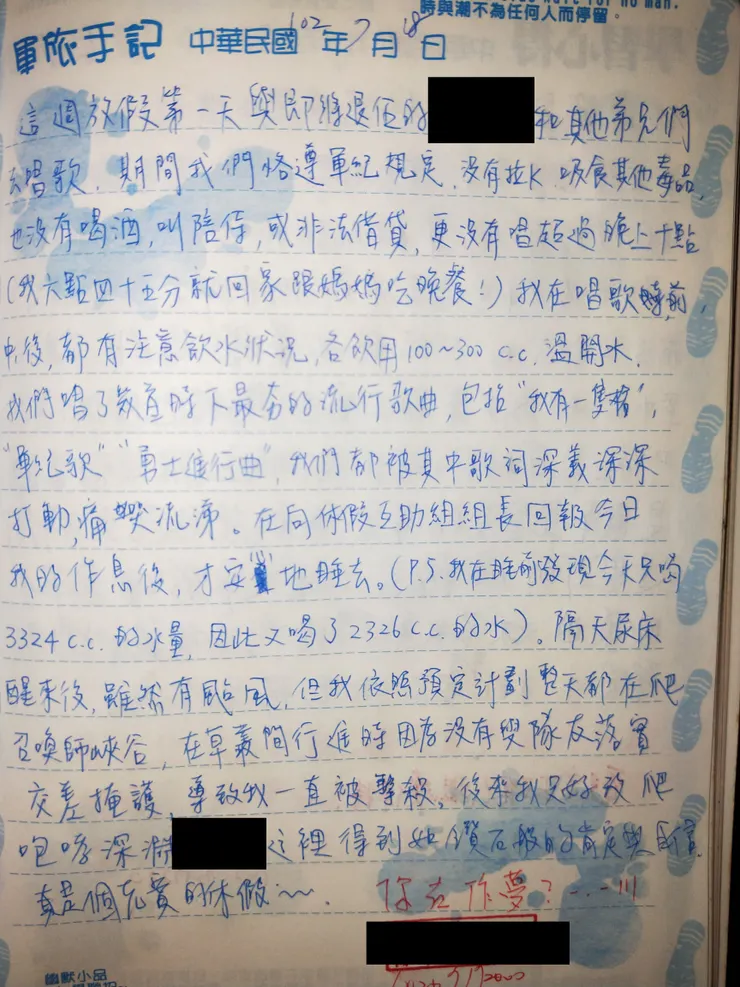 時與潮不為任何人而停留。
軍旅手記 中華民國102年7月18日
這週放假第一天與即將退伍的 和其他弟兄們
去唱歌,期間我們恪遵軍紀規定,沒有拉K、吸食其他毒品,
也沒有喝酒,叫陪侍,或非法借貸,更沒有唱超過晚上十點
(我六點四十五分就回家跟媽媽吃晚餐!)我在唱歌前,
中,後,都有注意飲水狀況,各飲用100~300 c.c.溫開水,
我們唱了幾首時下最夯的流行歌曲,包括"我有一隻槍",
"軍紀歌""勇士進行曲",我們都被其中歌詞深義深深
打動,痛哭流涕。在向休假互助組組長回報今日
我的作息後,才安心地睡去。(P.S.我在睡前發現今天只喝
3324 c.c.的水量,因此又喝了2326 c.c.的水)。隔天尿床
醒來後,雖然有颱風,但我依照預定計劃整天都在爬
召喚師峽谷,在草叢間行進時因為沒有與隊友落實
交差掩護,導致我一直被擊殺,後來我只好改爬
咆哮深淵 這裡得到如鑽石般的肯定與自信,
真是個充實的休假~~.
你在作夢?
幽默小品